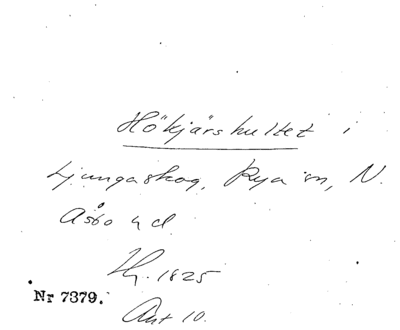 Hökjärshultet i
Ljungaskog, Rya sn, N.
Åsbo hd.
Hy. 1825
Nr 7379.
Ant 10.